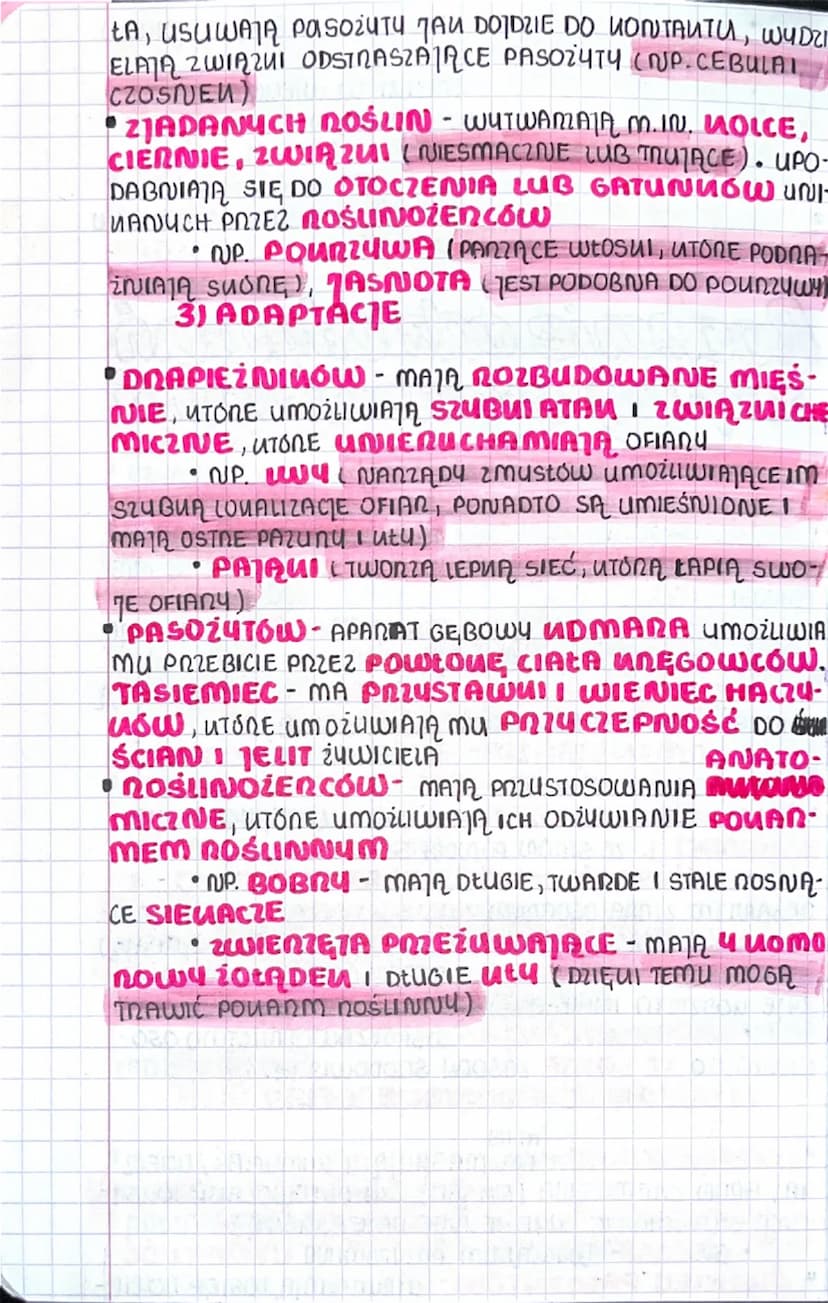 ŁA, USUWAJĄ PASOŻYTY JAK DOJDZIE DO KONTAKTU, WYDZI
ELAJĄ ZWIĄZKI ODSTRASZAJĄCE PASOŻYTY (NP. CEBULA I
CZOSNEK)
• ZJADANYCH ROŚLIN - WYTWARZAJĄ M.IN. KOLCE,
CIERNIE, ZWIĄZKI (NIESMACZNE LUB TRUJĄCE). UPO-
DABNIAJĄ SIĘ DO OTOCZENIA LUB GATUNKÓW UNI-
KANYCH PRZEZ ROŚLINOŻERCÓW
• NP. POKRZYWA (PARZĄCE WŁOSKI, KTÓRE PODRA-
ŻNIAJĄ SKÓRĘ), JASNOTA (JEST PODOBNA DO POKRZYWY)
3) ADAPTACJE
• DRAPIEŻNIKÓW - MAJĄ ROZBUDOWANE MIĘŚ-
NIE, KTÓRE UMOŻLIWIAJĄ SZYBKI ATAK I ZWIĄZKI CHE
MICZNE, KTÓRE UNIERUCHAMIAJĄ OFIARY
• NP. LWY (NARZĄDY ZMYSŁÓW UMOŻLIWIAJĄCE IM
SZYBKĄ LOKALIZACJE OFIAR, PONADTO SĄ UMIEŚNIONE I
MAJĄ OSTRE PAZURY I KŁY)
• PAJĄKI (TWORZĄ LEPKĄ SIEĆ, KTÓRĄ ŁAPIĄ SWO-
JE OFIARY)
• PASOŻYTÓW - APARAT GĘBOWY KOMARA UMOŻLIWIA
MU PRZEBICIE PRZEZ POWŁOKĘ CIAŁA KRĘGOWCÓW.
TASIEMIEC - MA PRZYSTAWKI I WIENIEC HACZY-
KÓW, KTÓRE UMOŻLIWIAJĄ MU PRZYCZEPNOŚĆ DO
ŚCIAN I JELIT ŻYWICIELA ANATO-
• ROŚLINOŻERCÓW - MAJĄ PRZYSTOSOWANIA
MICZNE, KTÓRE UMOŻLIWIAJĄ ICH ODŻYWIANIE POKAR-
MEM ROŚLINNYM
• NP. BOBRY - MAJĄ DŁUGIE, TWARDE I STALE ROSNĄ-
CE SIEKACZE
• ZWIERZĘTA PRZEŻUWAJĄCE - MAJĄ 4 KOMO
ROWY ŻOŁĄDEK I DŁUGIE KŁY (DZIĘKI TEMU MOGĄ
TRAWIĆ POKARM ROŚLINNY)